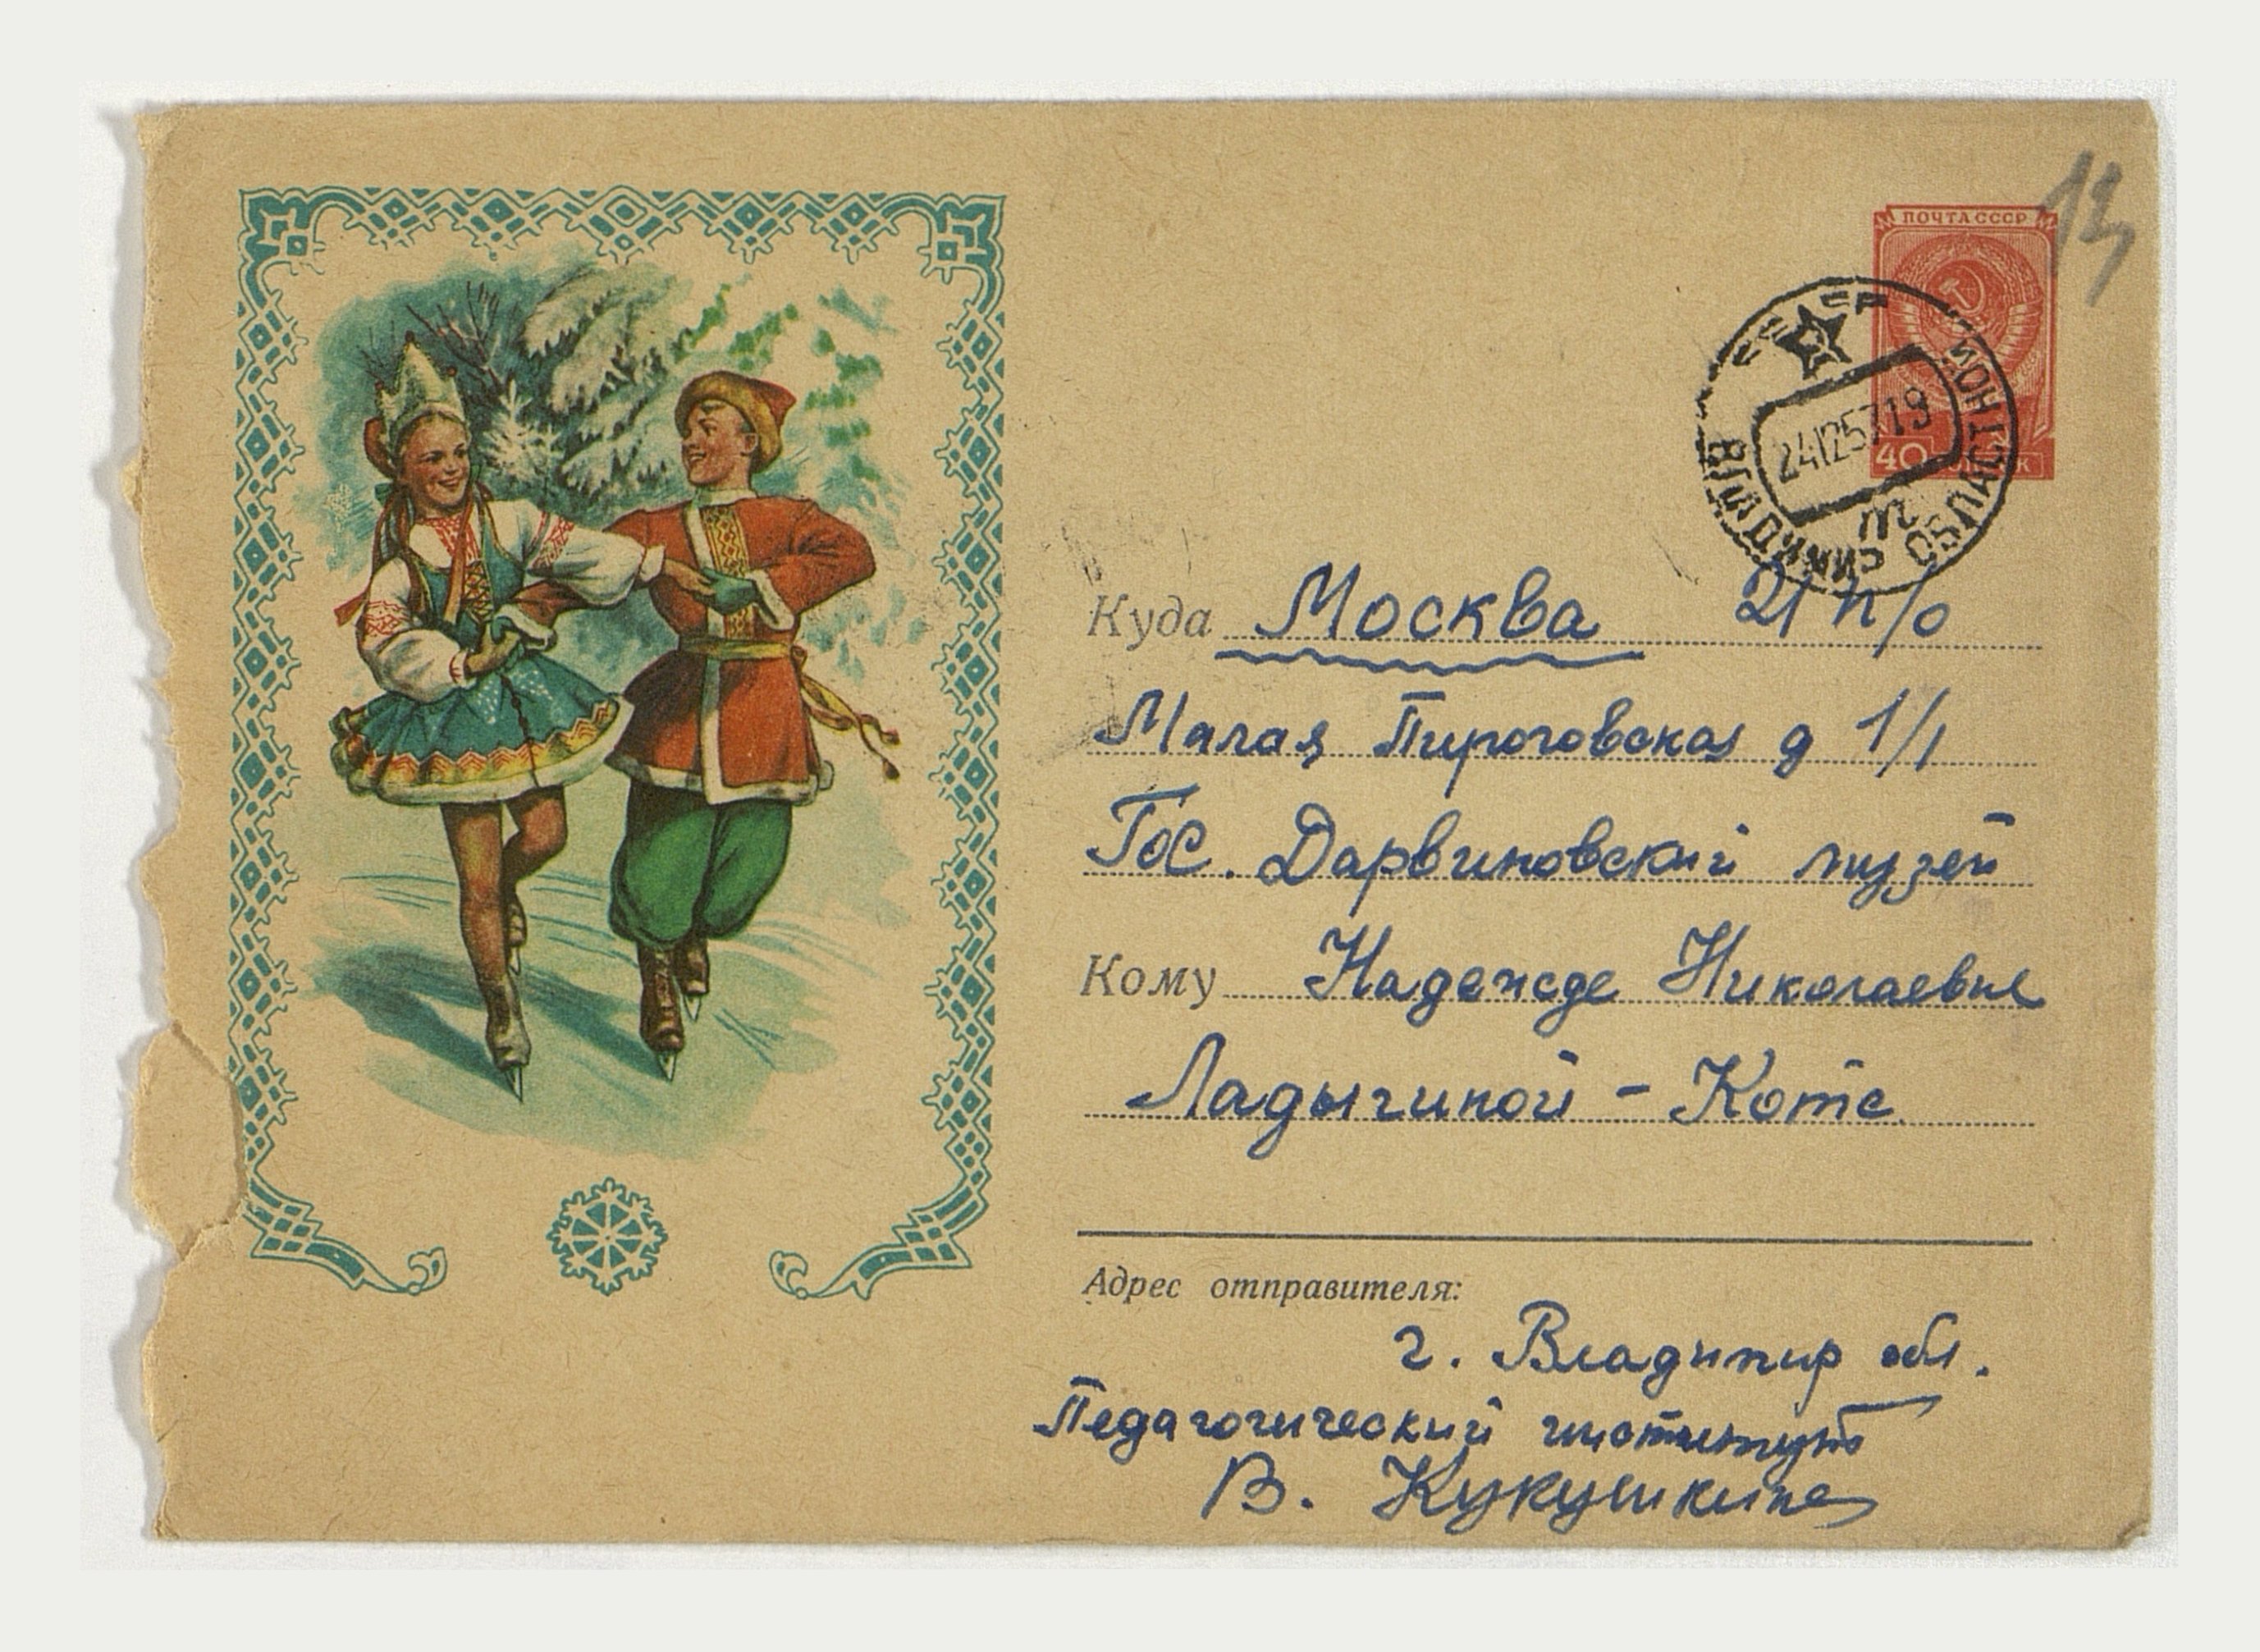 13
ПОЧТА СССР
СССР
ВЛАДИМИР
ОБЛАСТНОЙ
24 12 57 19
40 КОПЕЕК
Куда Москва 21 п/о
Малая Пироговская д 1/1
Гос. Дарвиновский музей
Кому Надежде Николаевне
Ладыгиной - Котс
Адрес отправителя:
г. Владимир обл.
Педагогический институт
В. Кукушкина